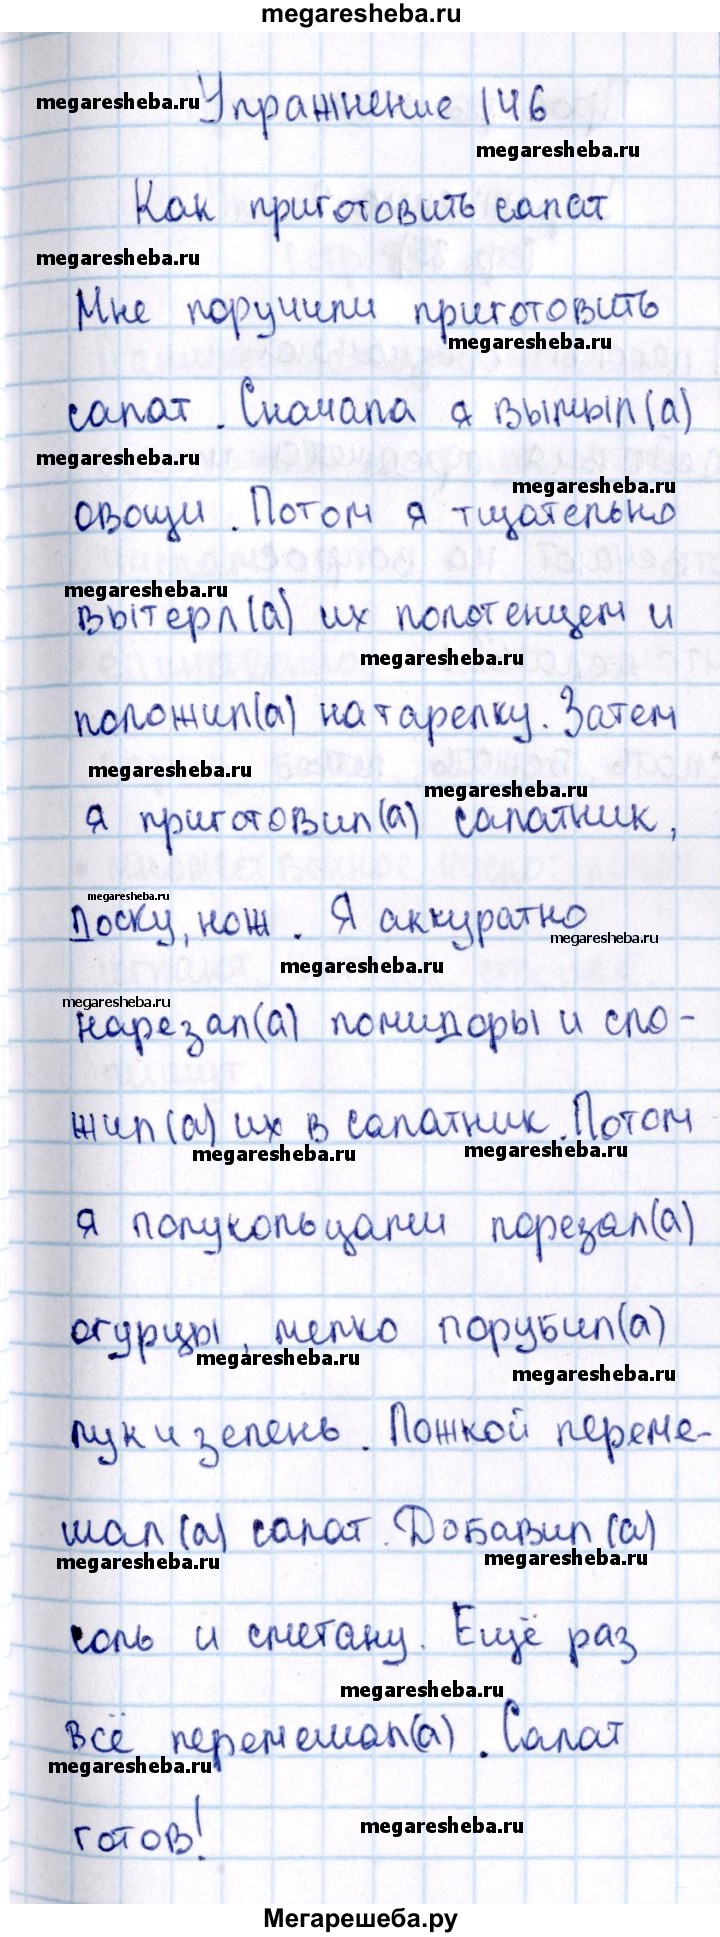 megaresheba.ru
megaresheba.ru
Упражнение 146
megaresheba.ru
Как приготовить салат
megaresheba.ru
Мне поручили приготовить
megaresheba.ru
салат. Сначала я вымыл(а)
megaresheba.ru
megaresheba.ru
овощи. Потом я тщательно
megaresheba.ru
вытерл(а) их полотенцем и
megaresheba.ru
положил(а) на тарелку. Затем
megaresheba.ru
megaresheba.ru
я приготовил(а) салатник,
megaresheba.ru
доску, нож. Я аккуратно
megaresheba.ru
megaresheba.ru
megaresheba.ru
нарезал(а) помидоры и сло-
жил(а) их в салатник. Потом
megaresheba.ru
megaresheba.ru
я полукольцами порезал(а)
огурцы, мелко порубил(а)
megaresheba.ru
megaresheba.ru
лук и зелень. Ложкой переме-
шал(а) салат. Добавил(а)
megaresheba.ru
megaresheba.ru
соль и сметану. Ещё раз
megaresheba.ru
всё перемешал(а). Салат
megaresheba.ru
готов!
megaresheba.ru
Мегарешеба.ру